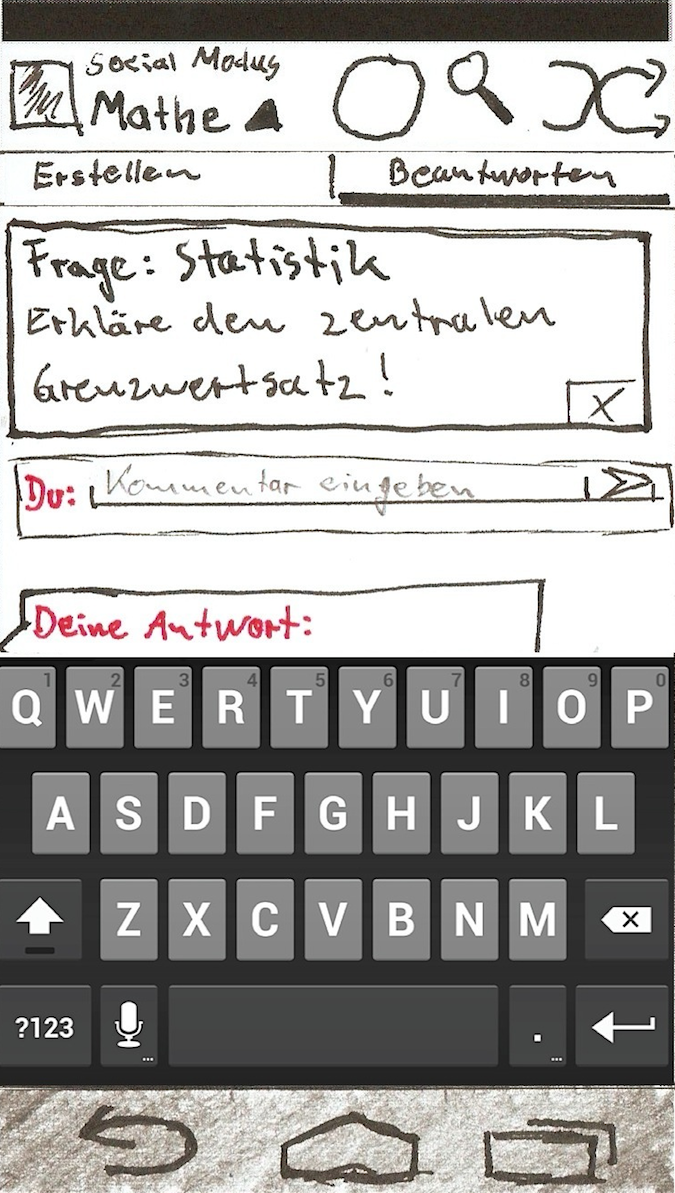 Social Modus
Mathe
Erstellen Beantworten
Frage: Statistik
Erkläre den zentralen
Grenzwertsatz!
X
Du: Kommentar eingeben
Deine Antwort:
1 2 3 4 5 6 7 8 9 0
Q W E R T Y U I O P
A S D F G H J K L
Z X C V B N M
?123 .